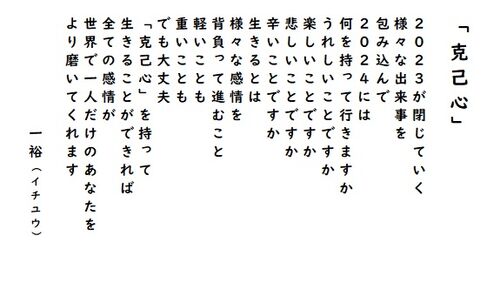 「克己心」
2023が閉じていく
様々な出来事を
包み込んで
2024には
何を持って行きますか
うれしいことですか
楽しいことですか
悲しいことですか
辛いことですか
生きるとは
様々な感情を
背負って進むこと
軽いことも
重いことも
でも大丈夫
「克己心」を持って
生きることができれば
全ての感情が
世界で一人だけのあなたを
より磨いてくれます
一裕（イチユウ）